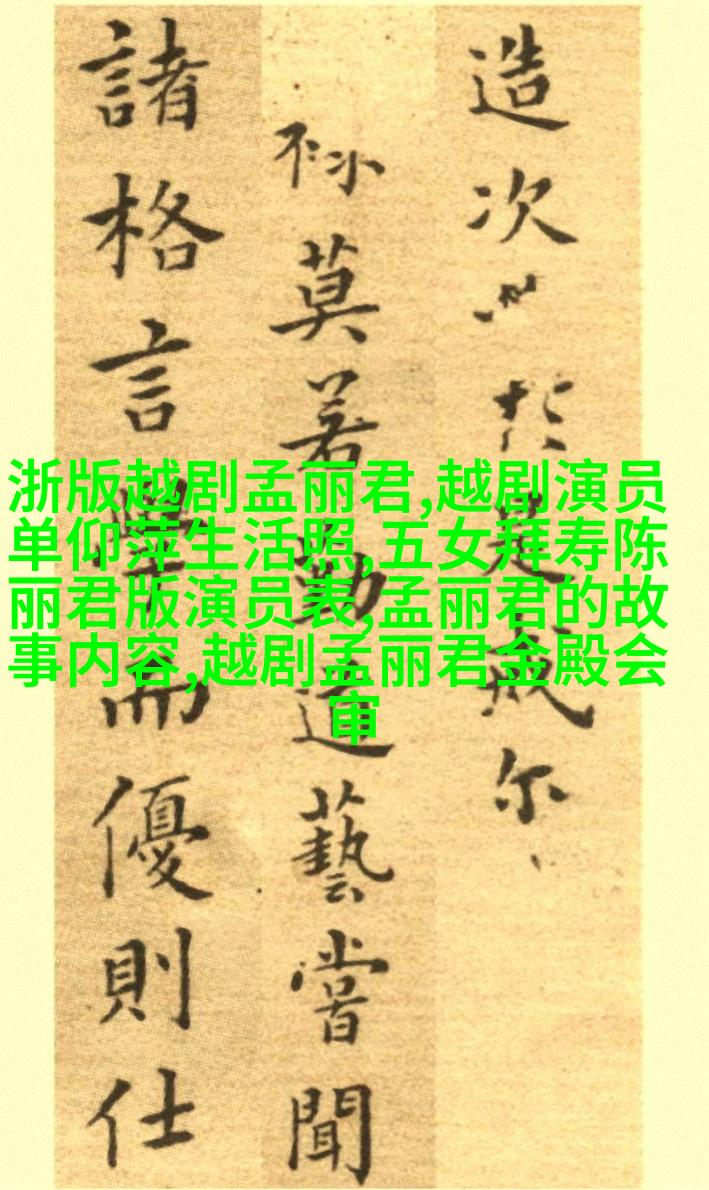 造次是戒尔
莫若勤道藝嘗聞
諸格言學而優則仕
浙版越剧孟丽君,越剧演员
单仰萍生活照,五女拜寿陈
丽君版演员表,孟丽君的故
事内容,越剧孟丽君金殿会
审